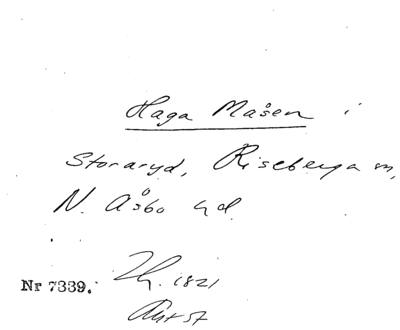 Haga Måsen i
Storaryd, Riseberga sn,
N. Åsbo hd.
Nr 7339. 1821